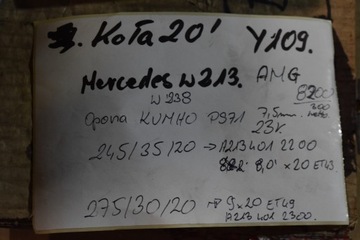 Koła 20' Y109.
Mercedes W213. AMG
W238 8200
Opona KUMHO PS71 7,5mm.
23r.
245/35/20 → A213 401 2200
8,0' x 20 ET43
275/30/20 → 9x20 ET49
A213 401 2300.